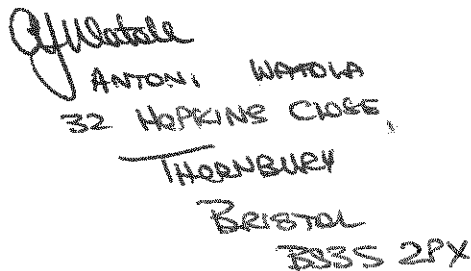 AJWatola
ANTONI WATOLA
32 HOPKINS CLOSE,
THORNBURY
BRISTOL
BS35 2PX